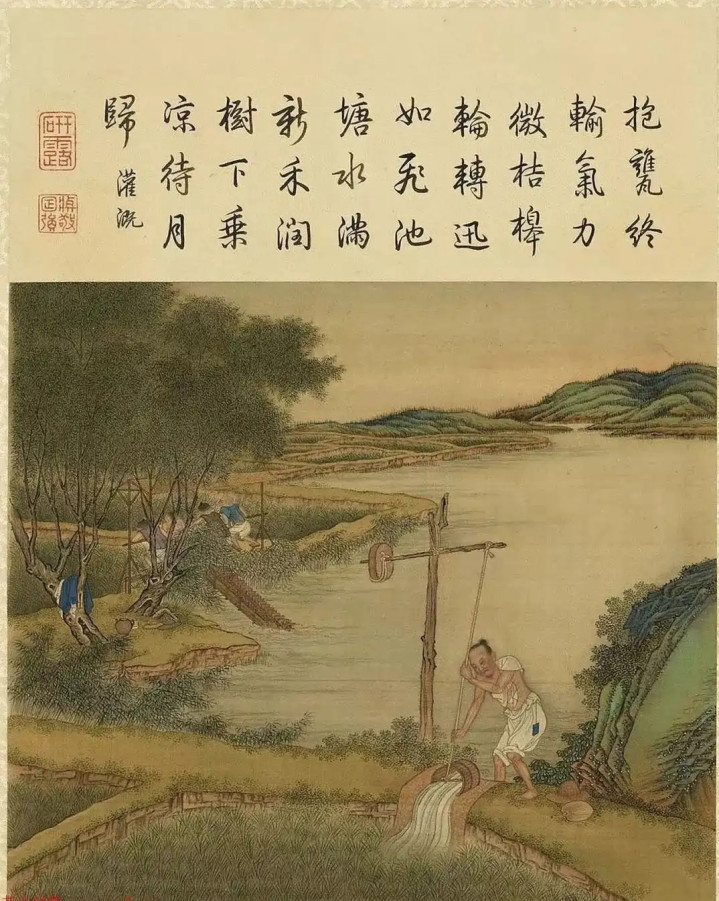 抱甕終
輸氣力
微桔槔
輪轉迅
如飛池
塘水滿
新禾潤
樹下乘
凉待月
歸 灌溉
研露